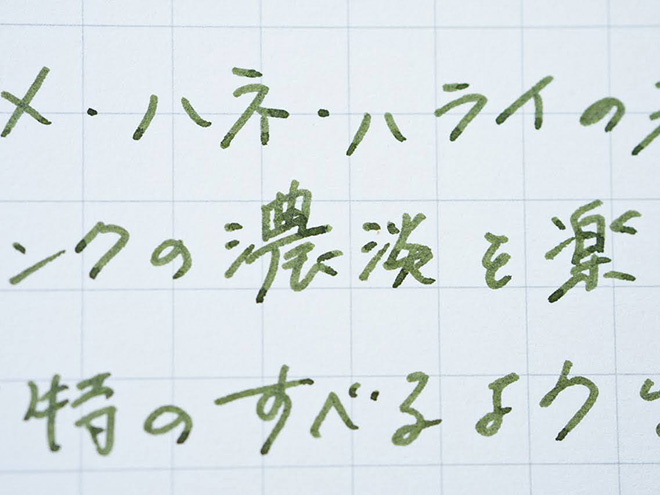 メ・ハネ・ハライの
ンクの濃淡を楽
特のすべるよう